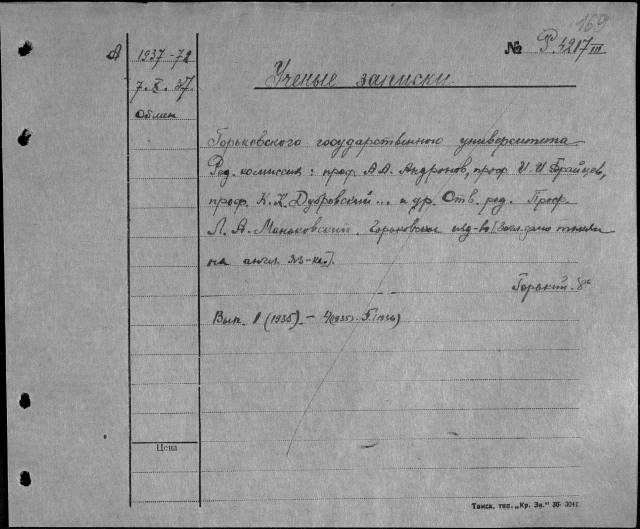 169
№ Р.4217/III
А
1937-72
7.X.37
Обмен
Ученые записки
Горьковского государственного университета
Ред. комиссия: проф. А.А. Андронов, проф. И.И.
проф. К.К. Дубровский... и др. Отв. ред. Проф.
Л.А. Маньковский. Горьковское изд-во [Загл. дано также
на англ. яз-ке].
Горький. 8°
Вып. 1 (1935) - 4(1935). 5(1936)
Цена
Томск, тип. „Кр. Зн.“ 36 3041